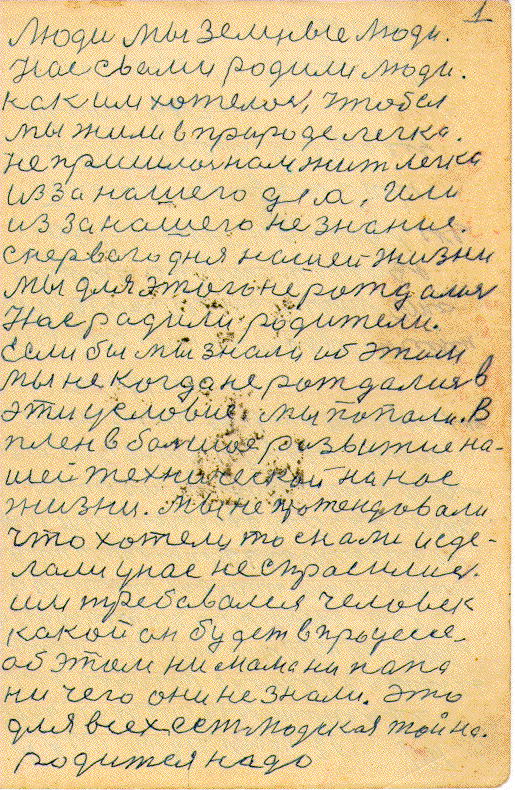 1
Люди мы земные люди.
Нас сьами родили люди.
как им хотелос, чтобы
мы жили в природе легка.
не пришлос нам жит легка
из за нашего дела, или
из за нашего не знание.
с первого дня нашей жизни
мы для этого не рождалися
Нас радили родители.
Если бы мы знали об этом
мы не когда не рождалися в
эти условие, мы попали. В
плен в большое развитие на-
шей технической на нас
жизни. Мы не протендовали
что хотели, то с нами исде-
лали у нас не спрасилися.
им требовался человек
какой он будет в процессе
об этом ни мама ни папа
ни чего они не знали. Это
для всех ест людская тайна.
родится надо